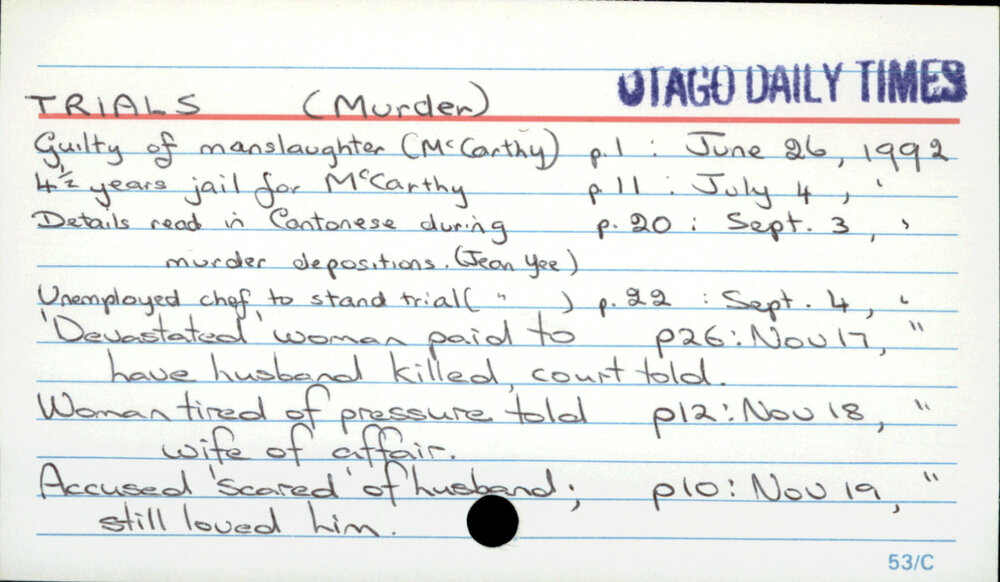 OTAGO DAILY TIMES
TRIALS (Murder)
Guilty of manslaughter (McCarthy) p.1 : June 26, 1992
4½ years jail for McCarthy p 11 : July 4, '
Details read in Cantonese during p. 20 : Sept. 3, '
murder depositions. (Jean Yee)
Unemployed chef to stand trial ( " ) p. 22 : Sept. 4, '
'Devastated' woman paid to p26: Nov 17, "
have husband killed, court told.
Woman tired of pressure told p12: Nov 18, "
wife of affair.
Accused 'scared' of husband; p10: Nov 19, "
still loved him.
53/C